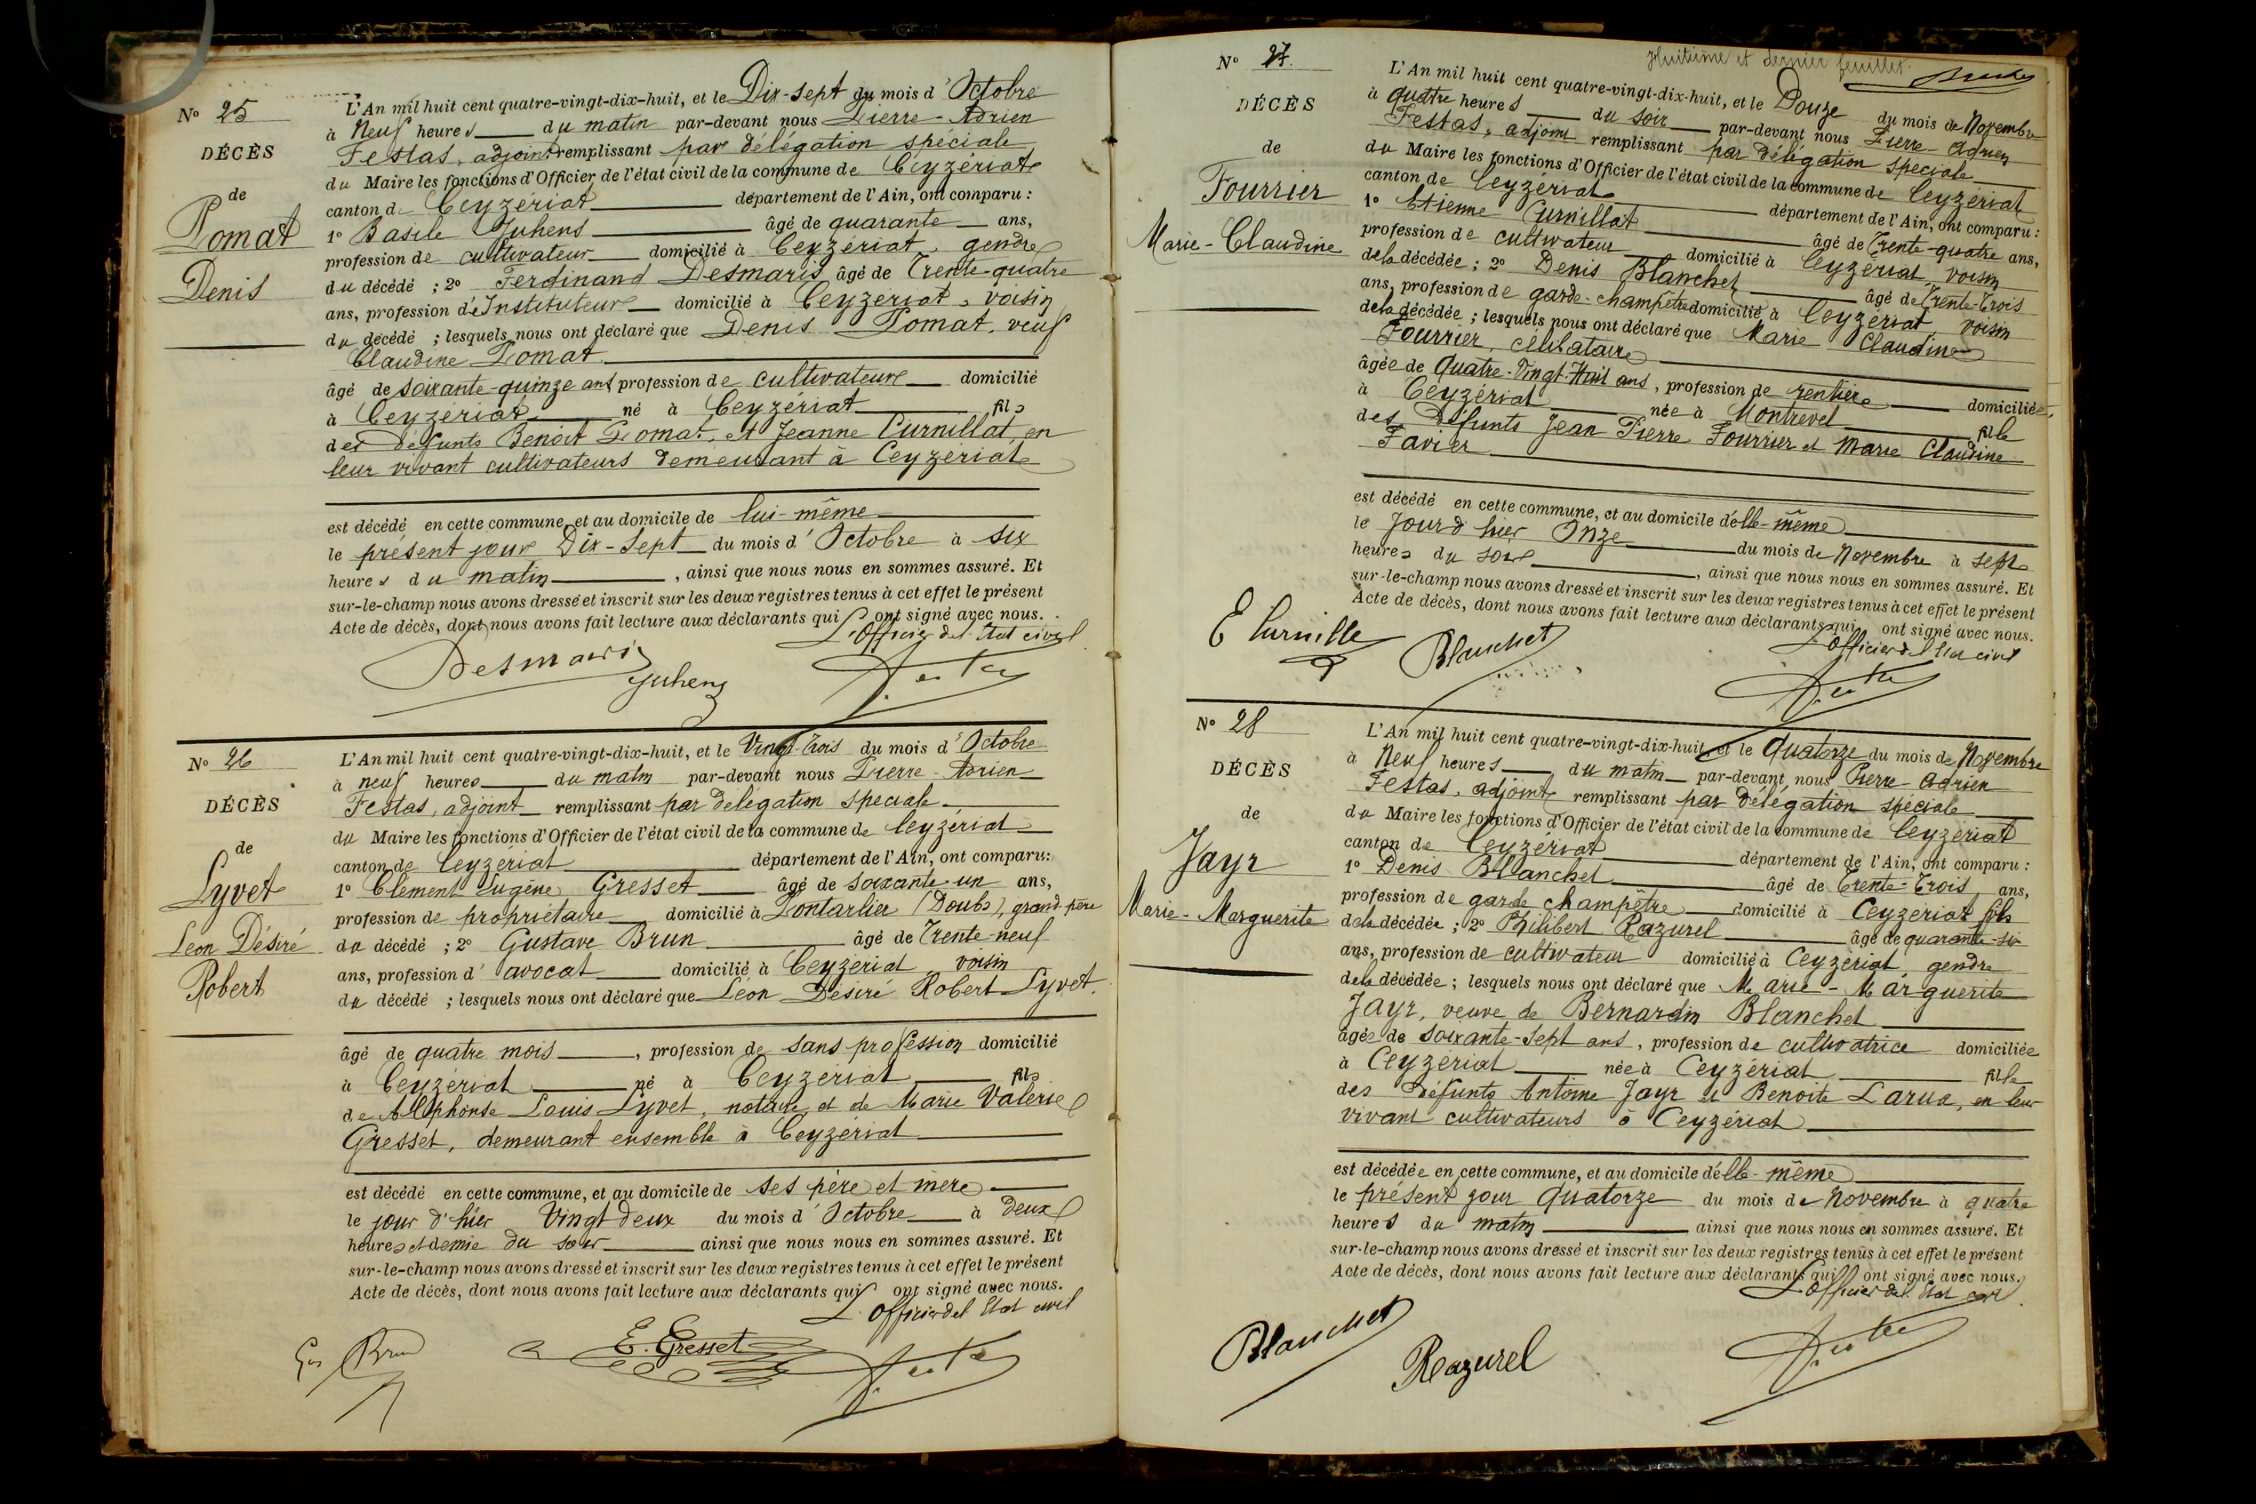 N° 25
DÉCÈS
de
Pomat
Denis
L'An mil huit cent quatre-vingt-dix-huit, et le Dix-sept du mois d'Octobre
à Neuf heures du matin par-devant nous Pierre-Adrien
Festas, adjoint remplissant par délégation spéciale
du Maire les fonctions d'Officier de l'état civil de la commune de Ceyzériat
canton de Ceyzériat département de l'Ain, ont comparu :
1° Basile Juhens âgé de quarante ans,
profession de cultivateur domicilié à Ceyzériat, gendre
du décédé ; 2° Ferdinand Desmaris âgé de Trente-quatre
ans, profession d'Instituteur domicilié à Ceyzériat, voisin
du décédé ; lesquels nous ont déclaré que Denis Pomat, veuf
Claudine Pomat
âgé de soixante-quinze ans profession de cultivateur domicilié
à Ceyzériat né à Ceyzériat fils
des défunts Benoit Pomat, et Jeanne Curnillat en
leur vivant cultivateurs demeurant à Ceyzériat
est décédé en cette commune, et au domicile de lui-même
le présent jour Dix-sept du mois d'Octobre à six
heures du matin, ainsi que nous nous en sommes assuré. Et
sur-le-champ nous avons dressé et inscrit sur les deux registres tenus à cet effet le présent
Acte de décès, dont nous avons fait lecture aux déclarants qui ont signé avec nous.
L'Officier de l'Etat civil
Desmaris Juhens
N° 26
DÉCÈS
de
Lyvet
Leon Désiré
Robert
L'An mil huit cent quatre-vingt-dix-huit, et le Vingt-Trois du mois d'Octobre
à neuf heures du matin par-devant nous Pierre-Adrien
Festas, adjoint remplissant par délégation spéciale
du Maire les fonctions d'Officier de l'état civil de la commune de Ceyzériat
canton de Ceyzériat département de l'Ain, ont comparu :
1° Clément Eugène Gresset âgé de soixante-un ans,
profession de propriétaire domicilié à Pontarlier (Doubs), grand-père
du décédé ; 2° Gustave Brun âgé de Trente-neuf
ans, profession d'avocat domicilié à Ceyzériat voisin
du décédé ; lesquels nous ont déclaré que Léon Désiré Robert Lyvet
âgé de quatre mois, profession de sans profession domicilié
à Ceyzériat né à Ceyzériat fils
de Alphonse Louis Lyvet, notaire et de Marie Valérie
Gresset, demeurant ensemble à Ceyzériat
est décédé en cette commune, et au domicile de ses père et mère
le jour d'hier Vingt deux du mois d'Octobre à deux
heures et demie du soir ainsi que nous nous en sommes assuré. Et
sur-le-champ nous avons dressé et inscrit sur les deux registres tenus à cet effet le présent
Acte de décès, dont nous avons fait lecture aux déclarants qui ont signé avec nous.
L'Officier de l'Etat civil
Gus Brun E. Gresset
Huitième et dernier feuillet.
N° 27.
DÉCÈS
de
Fourrier
Marie-Claudine
L'An mil huit cent quatre-vingt-dix-huit, et le Douze du mois de Novembre
à quatre heures du soir par-devant nous Pierre-Adrien
Festas, adjoint remplissant par délégation spéciale
du Maire les fonctions d'Officier de l'état civil de la commune de Ceyzériat
canton de Ceyzériat département de l'Ain, ont comparu :
1° Etienne Curnillat âgé de Trente-quatre ans,
profession de cultivateur domicilié à Ceyzériat, voisin
de la décédée ; 2° Denis Blanchet âgé de Trente-Trois
ans, profession de garde-champêtre domicilié à Ceyzériat, voisin
de la décédée ; lesquels nous ont déclaré que Marie Claudine
Fourrier, célibataire
âgée de Quatre-Vingt-Huit ans, profession de rentière domiciliée
à Ceyzériat née à Montrevel fille
des Défunts Jean Pierre Fourrier et Marie Claudine
Favier
est décédé en cette commune, et au domicile d'elle-même
le Jour d'hier Onze du mois de Novembre à sept
heures du soir, ainsi que nous nous en sommes assuré. Et
sur-le-champ nous avons dressé et inscrit sur les deux registres tenus à cet effet le présent
Acte de décès, dont nous avons fait lecture aux déclarants qui ont signé avec nous.
L'Officier de l'Etat civil
E Curnille Blanchet
N° 28
DÉCÈS
de
Jayr
Marie-Marguerite
L'An mil huit cent quatre-vingt-dix-huit, et le Quatorze du mois de Novembre
à Neuf heures du matin par-devant nous Pierre-Adrien
Festas, adjoint remplissant par délégation spéciale
du Maire les fonctions d'Officier de l'état civil de la commune de Ceyzériat
canton de Ceyzériat département de l'Ain, ont comparu :
1° Denis Blanchet âgé de Trente-Trois ans,
profession de garde champêtre domicilié à Ceyzériat fils
de la décédée ; 2° Philibert Razurel âgé de quarante-six
ans, profession de cultivateur domicilié à Ceyzériat gendre
de la décédée ; lesquels nous ont déclaré que Marie-Marguerite
Jayr, veuve de Bernardin Blanchet
âgée de soixante-sept ans, profession de cultivatrice domiciliée
à Ceyzériat née à Ceyzériat fille
des Défunts Antoine Jayr et Benoite Larua, en leur
vivant cultivateurs à Ceyzériat
est décédée en cette commune, et au domicile d'elle-même
le présent jour Quatorze du mois de Novembre à quatre
heures du matin ainsi que nous nous en sommes assuré. Et
sur-le-champ nous avons dressé et inscrit sur les deux registres tenus à cet effet le présent
Acte de décès, dont nous avons fait lecture aux déclarants qui ont signé avec nous.
L'Officier de l'Etat civil
Blanchet Razurel